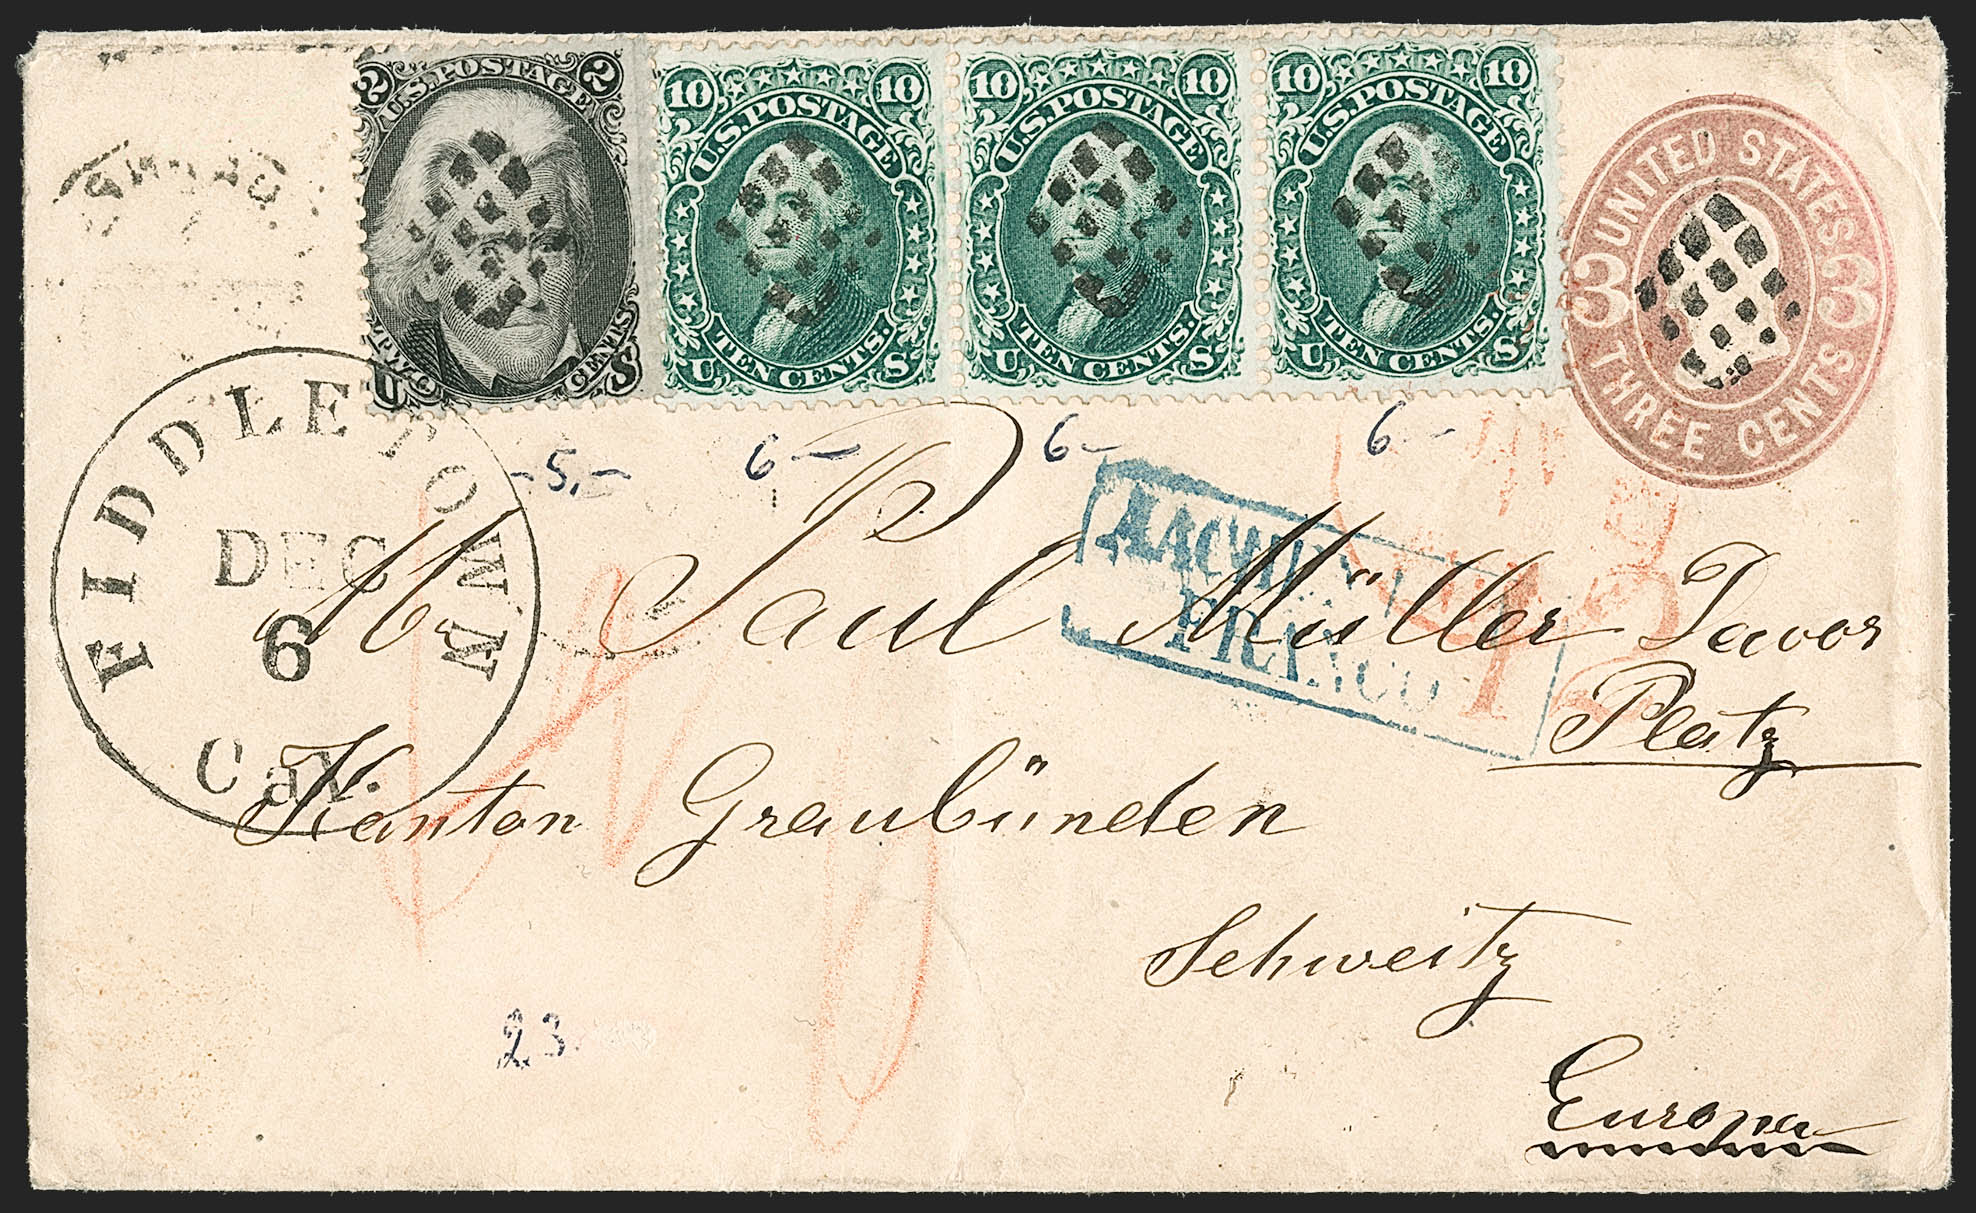 2 U.S. POSTAGE 2
TWO CENTS
U S
10 U.S. POSTAGE 10
TEN CENTS.
U S
10 U.S. POSTAGE 10
TEN CENTS.
U S
10 U.S. POSTAGE 10
TEN CENTS.
U S
UNITED STATES
3 3
THREE CENTS
FIDDLETOWN
DEC
6
Cal.
-5,- 6- 6- 6-
AACHEN
FRANCO
12
M Paul Müller Davos
Platz
Kanton Graubünden
Schweitz
Europa
23